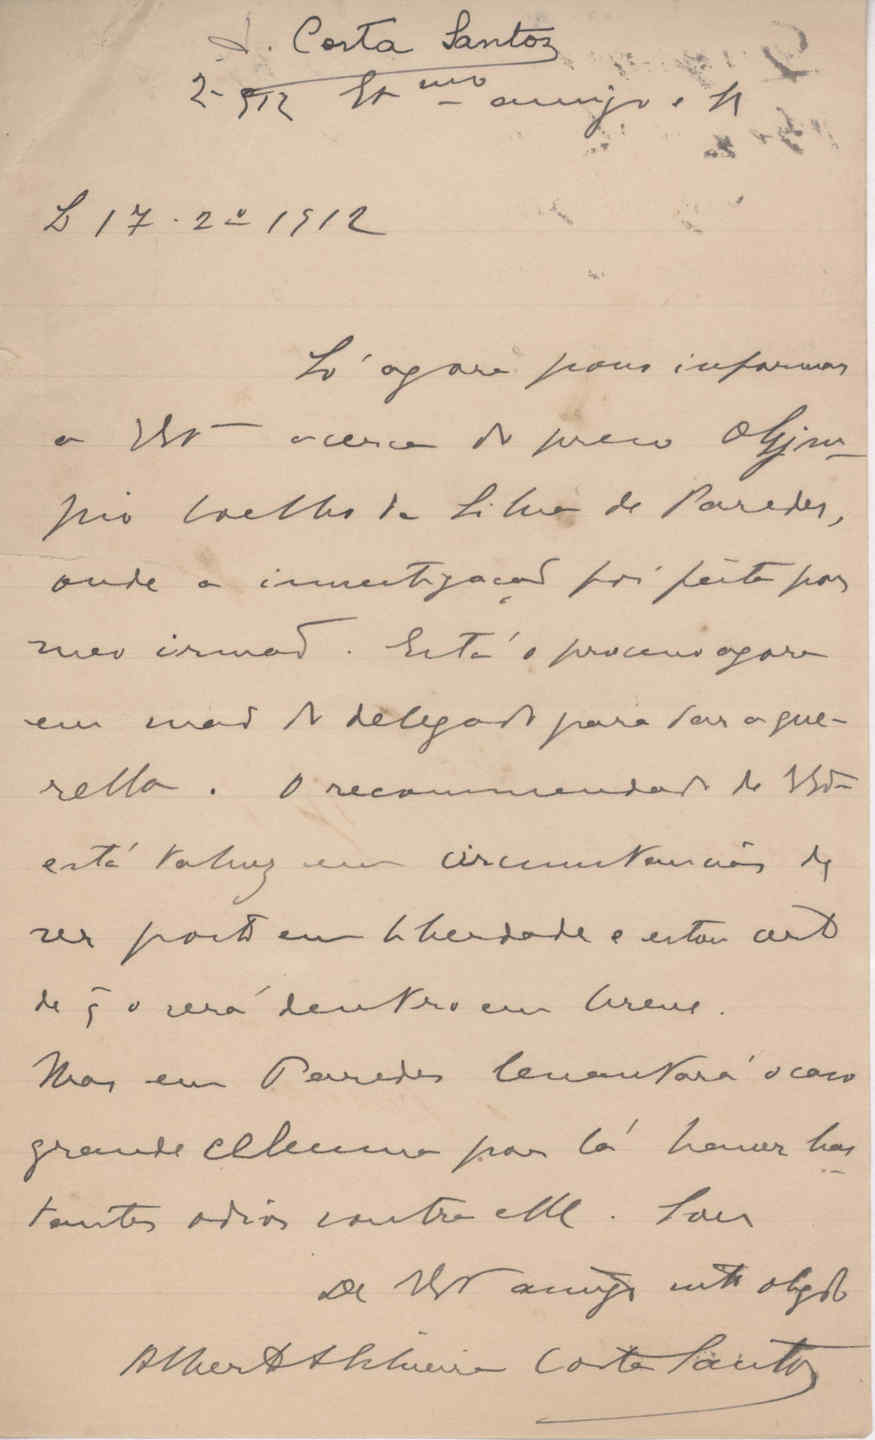 Costa Santos
2-912 Ex mo amigo e
L 17-2º 1912
Só agora posso informar
a VExª acerca do preso Olym-
pio Coelho da Silva de Paredes,
onde a investigação foi feita por
meo irmaõ. Está o processo agora
em maõ do delegado para dar a que-
rella. O recommendado de VExª
está talvez em circumstancias de
ser posto em liberdade e estou certo
de q̃ o será dentro em breve.
Mas em Paredes levantará o caso
grande celeuma por lá haver bas-
tantes odios contra elle. Sou
De VExª amigo mtº obgdº
Alberto d'Oliveira Costa Santos